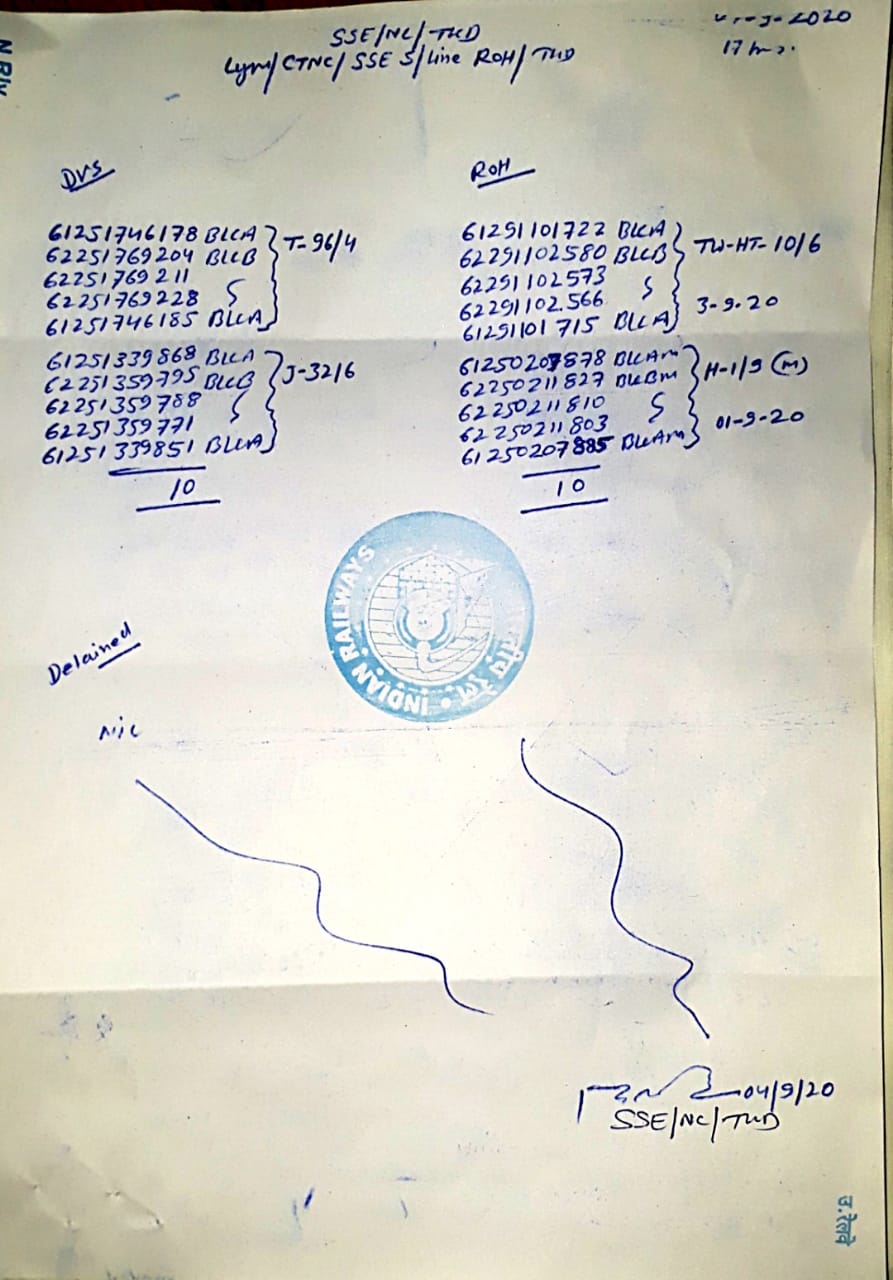 N Rly
SSE/NC/TKD
Lym/CTNC/SSE S/Line ROH/TKD
-9-2020
17 hrs.
DVS
61251746178 BLCA
62251769204 BLCB
62251769211
62251769228
61251746185 BLCA
T-96/4
61251339868 BLCA
62251359795 BLCB
62251359788
62251359771
61251339851 BLCA
J-32/6
10
ROH
61291101722 BLCA
62291102580 BLCB
62291102573
62291102566
61291101715 BLCA
TW-HT-10/6
3-9-20
61250207878 BLCAM
62250211827 BLCBM
62250211810
62250211803
61250207885 BLCAM
H-1/9 (M)
01-9-20
10
INDIAN RAILWAYS
रेल
Detained
NIL
04/9/20
SSE/NC/TKD
उ.रेलवे